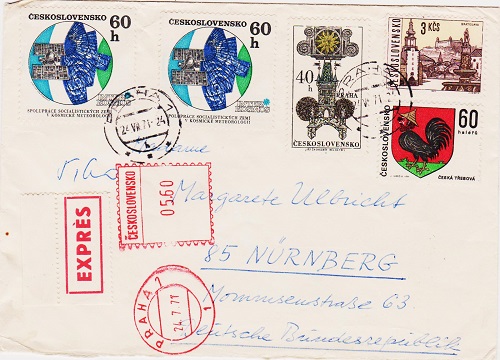 ČESKOSLOVENSKO 60 h
SPOLUPRÁCE SOCIALISTICKÝCH ZEMÍ
V KOSMICKÉ METEOROLOGII
INTER KOSMOS
ČESKOSLOVENSKO 60 h
SPOLUPRÁCE SOCIALISTICKÝCH ZEMÍ
V KOSMICKÉ METEOROLOGII
INTER KOSMOS
40 h
PRAHA
ČESKOSLOVENSKO
BRATISLAVA
3 KČS
ČESKOSLOVENSKO
60
haléřů
ČESKOSLOVENSKO
ČESKÁ TŘEBOVÁ
PRAHA 1
24.VII.71-24
PRAHA
EXPRÈS
ČESKOSLOVENSKO
0560
PRAHA 1
24.7.71
1
Margarete Ulbricht
85 NÜRNBERG
Mommsenstraße 63
Deutsche Bundesrepublik